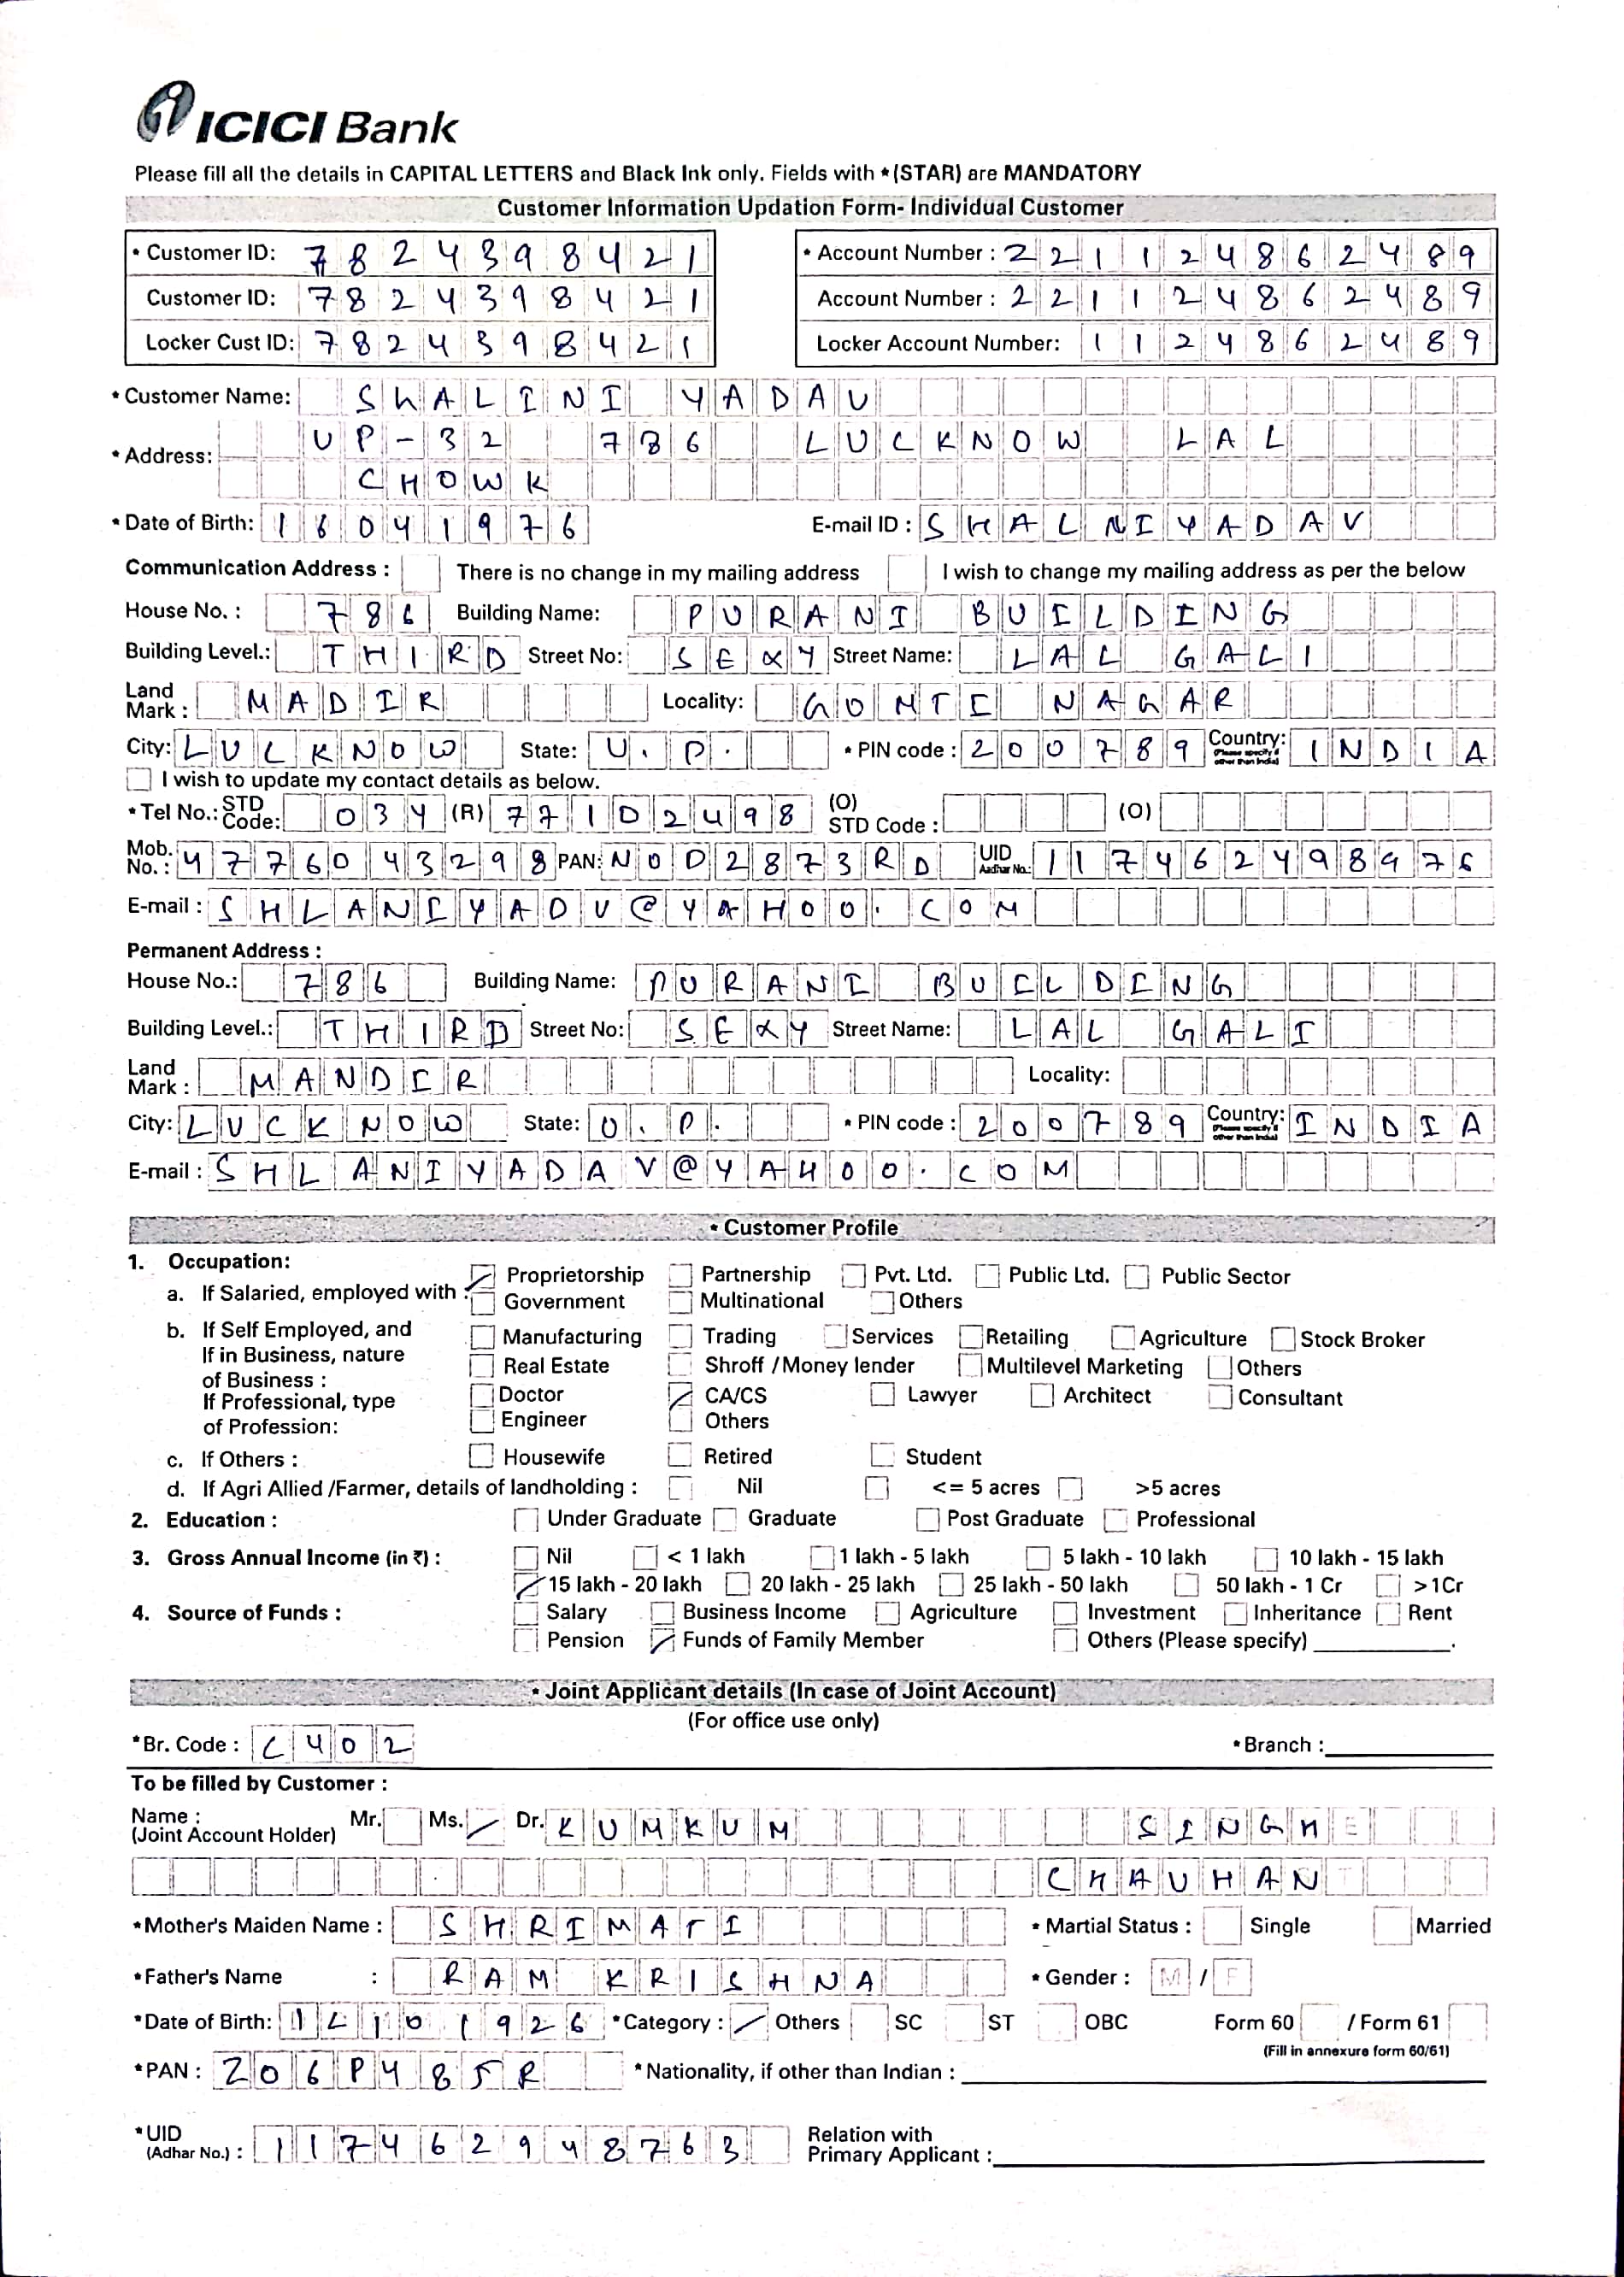 ICICI Bank
Please fill all the details in CAPITAL LETTERS and Black Ink only. Fields with * (STAR) are MANDATORY
Customer Information Updation Form- Individual Customer
* Customer ID: 7824398421 * Account Number : 221124862489
Customer ID: 7824398421 Account Number : 221124862489
Locker Cust ID: 7824398421 Locker Account Number: 1124862489
* Customer Name: ShALINI YADAV
* Address: UP-32 786 LUCKNOW LAL
CHOWK
* Date of Birth: 16041976 E-mail ID : SHALNIYADAV
Communication Address : There is no change in my mailing address I wish to change my mailing address as per the below
House No. : 786 Building Name: PURANI BUILDING
Building Level.: THIRD Street No: SEXY Street Name: LAL GALI
Land Mark : MADIR Locality: GOMTI NAGAR
City: LUCKNOW State: U.P. * PIN code : 200789 Country: (Please specify if other than India) INDIA
I wish to update my contact details as below.
* Tel No.: STD Code: 034 (R) 77102498 (O) STD Code : (O)
Mob. No. : 4776043298 PAN: NOD2873RD UID Aadhar No.: 117462498976
E-mail : SHLANIYADV@YAHOO.COM
Permanent Address :
House No.: 786 Building Name: PURANI BUILDING
Building Level.: THIRD Street No: SEXY Street Name: LAL GALI
Land Mark : MANDIR Locality:
City: LUCKNOW State: U.P. * PIN code : 200789 Country: (Please specify if other than India) INDIA
E-mail : SHLANIYADAV@YAHOO.COM
* Customer Profile
1. Occupation:
a. If Salaried, employed with : Proprietorship Partnership Pvt. Ltd. Public Ltd. Public Sector
Government Multinational Others
b. If Self Employed, and Manufacturing Trading Services Retailing Agriculture Stock Broker
If in Business, nature Real Estate Shroff /Money lender Multilevel Marketing Others
of Business :
If Professional, type Doctor CA/CS Lawyer Architect Consultant
of Profession: Engineer Others
c. If Others : Housewife Retired Student
d. If Agri Allied /Farmer, details of landholding : Nil <= 5 acres >5 acres
2. Education : Under Graduate Graduate Post Graduate Professional
3. Gross Annual Income (in ₹) : Nil < 1 lakh 1 lakh - 5 lakh 5 lakh - 10 lakh 10 lakh - 15 lakh
15 lakh - 20 lakh 20 lakh - 25 lakh 25 lakh - 50 lakh 50 lakh - 1 Cr >1Cr
4. Source of Funds : Salary Business Income Agriculture Investment Inheritance Rent
Pension Funds of Family Member Others (Please specify)
* Joint Applicant details (In case of Joint Account)
(For office use only)
*Br. Code : C402 * Branch :
To be filled by Customer :
Name : (Joint Account Holder) Mr. Ms. Dr. KUMKUM SINGH
CHAUHAN
*Mother's Maiden Name : SHRIMATI * Martial Status : Single Married
*Father's Name : RAM KRISHNA * Gender : M / F
*Date of Birth: 12101926 *Category : Others SC ST OBC Form 60 / Form 61
(Fill in annexure form 60/61)
*PAN : 206P485R *Nationality, if other than Indian :
*UID (Adhar No.) : 117462948763 Relation with Primary Applicant :